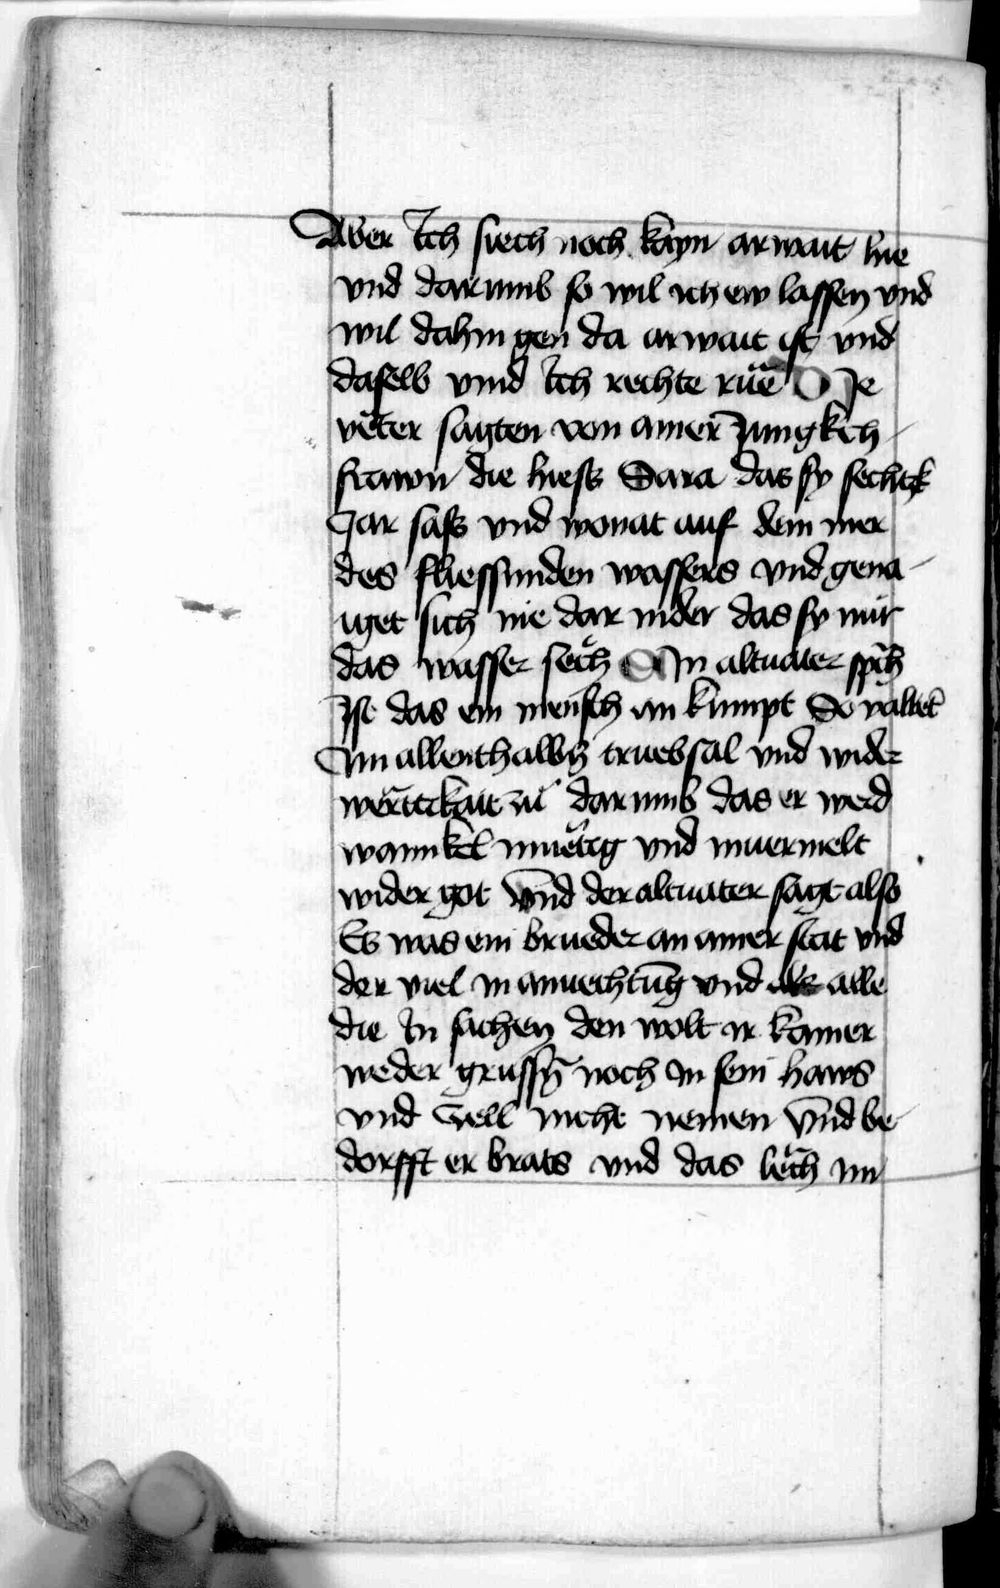 Aber Ich siech noch kayn arwait hie
vnd darumb so wil ich ew lassen vnd
wil dahin gen da arwait ist vnd
daselb vind Ich rechte rue DJe
veter sagten von ainer Jungkch
frawn die hiess Sara das sy sechtzk
Jar sass vnd wonat auf dem mer
des fliessunden wassers vnd gena
iget sich nie dar nider das sy nur
das wasser sech Ain altuater sprach
Ist das ein mensch an kumpt So vallet
Inn allenthalbn truebsal vnd wider
wertickait zu darumb das er werd
wannkel muetig vnd muermelt
wider got Vnd der altuater sagt also
Es was ein brueder an ainer stat vnd
der viel in anuechtung vnd alle
die In sachen den wolt ir kainer
weder grussen noch In sein haws
vnd Cell nicht nemen Vnd be
dorfft er brats vnd das lech im